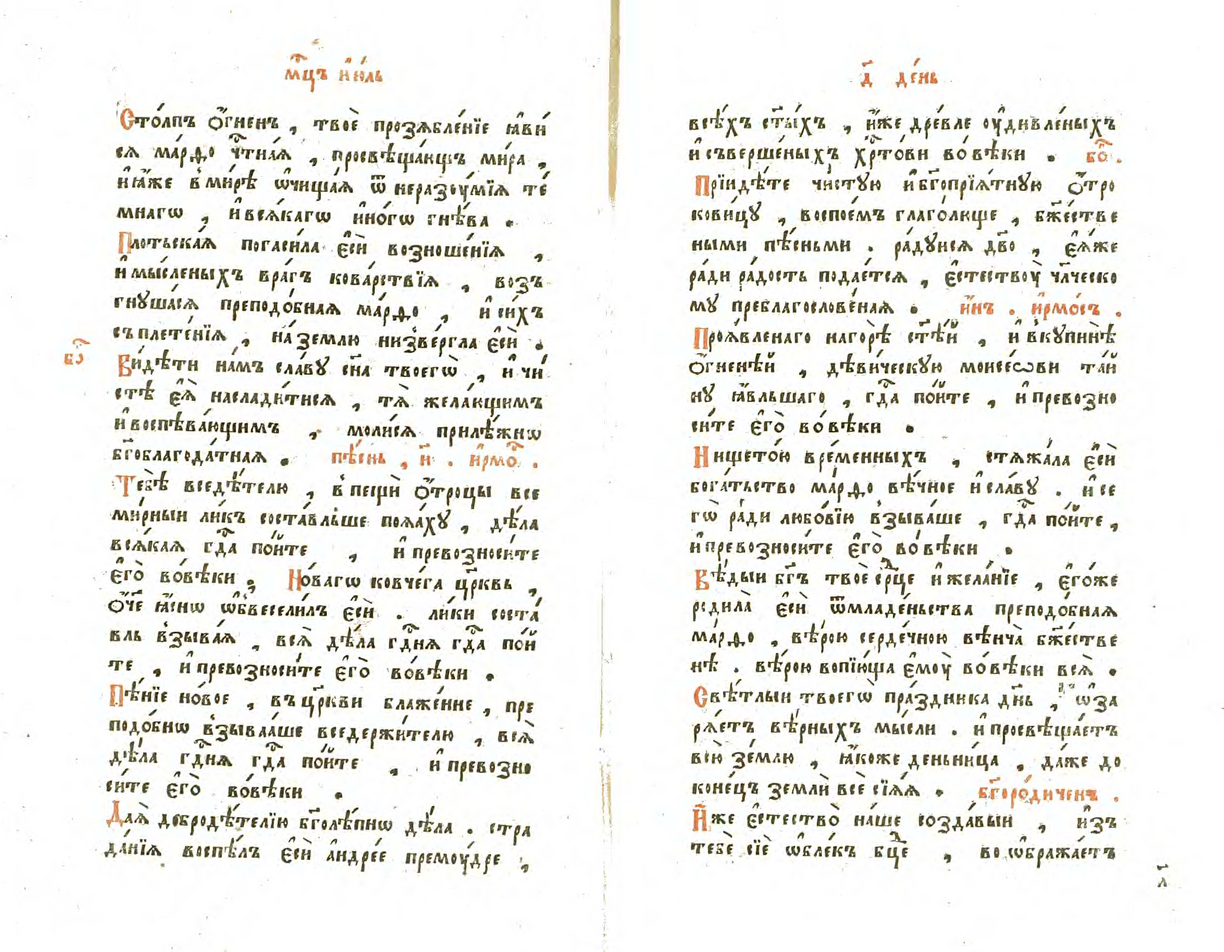 мц҃ъ і҆ю́ль
Сто́лпъ ѻ҆́гненъ , твоѐ прозѧбле́нїе ꙗ҆ви́
сѧ ма́рѳо чт҃наѧ , просвѣща́ющъ ми́ра ,
и҆ ꙗ҆́же в ми́рѣ ѡ҆чища́ѧ ѿ неразꙋ́мїѧ те́
мнагѡ , и҆ всѧ́кагѡ и҆но́гѡ гнѣ́ва .
Пло́тьскаѧ погаси́ла є҆сѝ возноше́нїѧ ,
и҆ мы́сленыхъ вра́гъ кова́рствїѧ , возъ
гнꙋша́сѧ преподо́бнаѧ ма́рѳо , и҆ си́хъ
съплете́нїѧ , на́ землю низве́ргла є҆сѝ .
бо҃
Ви́дѣти на́мъ сла́вꙋ сн҃а твоегѡ̀ , и҆ чи́
стѣ є҆ѧ̀ наслади́тисѧ , тѧ̀ жела́ющимъ
и҆ воспѣва́ющимъ , моли́сѧ прилѣ́жнѡ
бг҃облагода́тнаѧ . пѣ́снь , и҃ . і҆рмо́ .
Тебѐ вседѣ́телю , в пещѝ ѻ҆́троцы все
ми́рныи ли́къ соста́вльше поѧ́хꙋ , дѣ́ла
всѧ́каѧ гд҇а по́йте , и҆ превозноси́те
є҆го̀ во́вѣки . Но́вагѡ ковче́га цр҃квь ,
ѻ҆́ч҃е ꙗ҆́снѡ ѡ҆бвесели́лъ є҆сѝ . ли́ки соста́
вль взыва́ѧ , всѧ̀ дѣ́ла гд҇нѧ гд҇а по́й
те , и҆ превозноси́те є҆го̀ во́вѣки .
Пѣ́нїе но́вое , въ цр҃кви блаже́нне , пре
подо́бнѡ взыва́аше вседержи́телю , всѧ̀
дѣ́ла гд҇нѧ гд҇а по́йте , и҆ превозно
си́те є҆го̀ во́вѣки .
Даѧ̀ добродѣ́телїю бг҃олѣ́пнѡ дѣ́ла . стра
да́нїѧ воспѣ́лъ є҆сѝ а҆ндре́е премꙋ́дре ,
д҃ де́нь
всѣ́хъ ст҃ы́хъ , и҆̀же дре́вле ᲂу҆дивле́ныхъ
и҆ съверше́ныхъ хр҇то́ви во́вѣки . бо҃ .
Прїидѣ́те чи́стꙋю и҆ бг҃опрїѧ́тнꙋю ѻ҆тро
кови́цꙋ , воспое́мъ глаго́люще , бж҃е́стве
ными пѣ́сньми . ра́дꙋисѧ дв҃о , є҆ѧ́же
ра́ди ра́дость подае́тсѧ , є҆стествꙋ̀ чл҃ческо
мꙋ преблагослове́наѧ . и҆́нъ . і҆рмо́съ .
Проѧвле́наго на горѣ̀ ст҃ѣ́й , и҆ в кꙋпинѣ̀
ѻ҆́гненѣй , дѣви́ческꙋю моисе́ѡви та́й
нꙋ ꙗ҆́вльшаго , гд҇а по́йте , и҆ превозно
си́те є҆го̀ во́вѣки .
Нището́ю вре́менныхъ , стѧжа́ла є҆сѝ
бога́тьство ма́рѳо вѣ́чное и҆ сла́вꙋ . и҆ се
гѡ̀ ра́ди любо́вїю взыва́ше , гд҇а по́йте ,
и҆ превозноси́те є҆го̀ во́вѣки .
Вѣ́дыи бг҃ъ твоѐ ср҇це и҆ жела́нїе , є҆го́же
роди́ла є҆сѝ ѿ младе́ньства преподо́бнаѧ
ма́рѳо , вѣ́рою серде́чною вѣнча̀ бж҃е́стве
нѣ . вѣ́рою вопїю́ща є҆мꙋ̀ во́вѣки всѧ̀ .
Свѣ́тлыи твоегѡ̀ пра́здника дн҃ь , ѡ҆за
рѧ́етъ вѣ́рныхъ мы́сли . и҆ просвѣща́етъ
всю̀ зе́млю , ꙗ҆́коже деньни́ца , да́же до
коне́цъ землѝ всѐ сїѧ́ѧ . бг҃оро́диченъ .
И҆́же є҆стество̀ на́ше созда́выи , и҆зъ
тебѐ сїѐ ѡ҆бле́къ бц҃е , воѡ҆бража́етъ
л҃